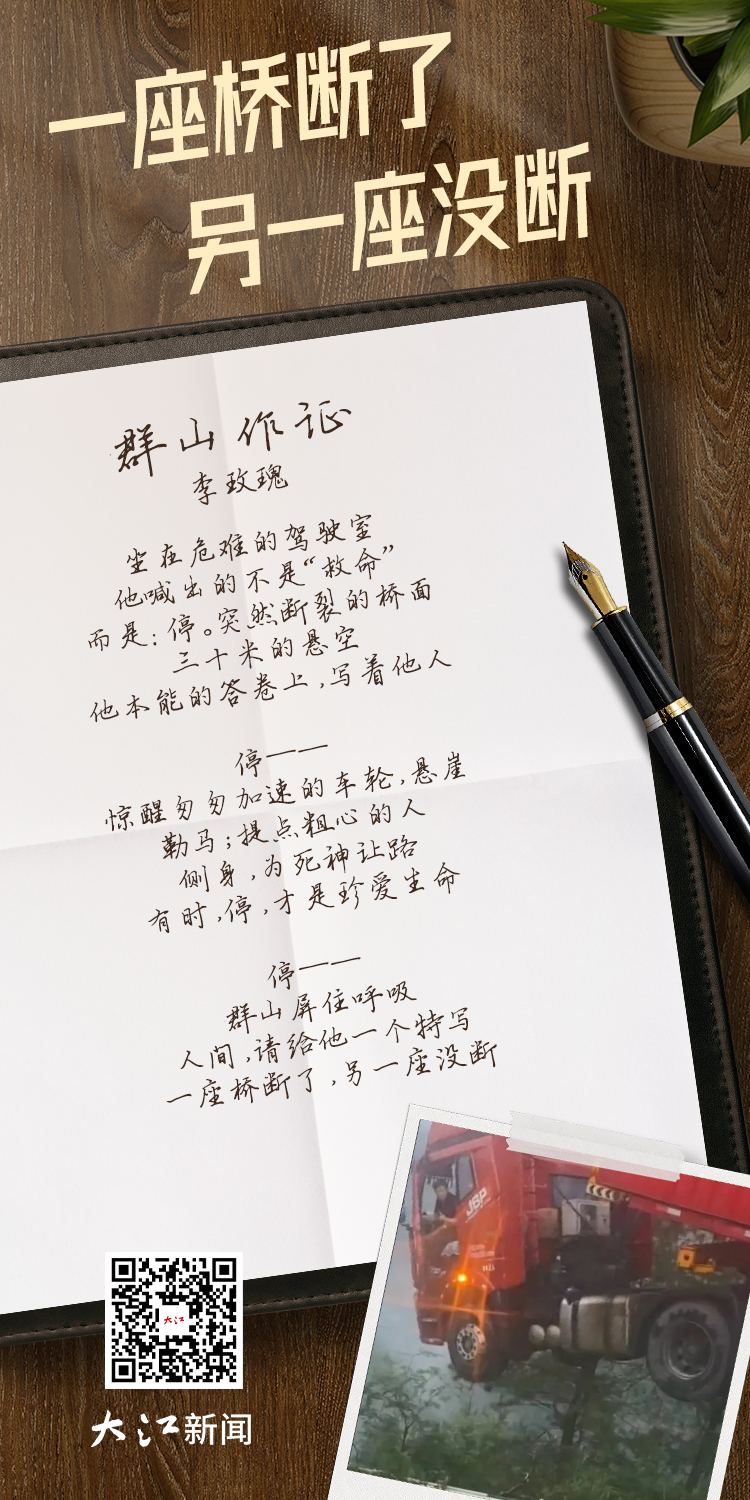 一座桥断了
另一座没断
群山作证
李玫瑰
坐在危难的驾驶室
他喊出的不是“救命”
而是：停。突然断裂的桥面
三十米的悬空
他本能的答卷上，写着他人
停——
惊醒匆匆加速的车轮，悬崖
勒马；提点粗心的人
侧身，为死神让路
有时，停，才是珍爱生命
停——
群山屏住呼吸
人间，请给他一个特写
一座桥断了，另一座没断
J6P
大江
大江新闻